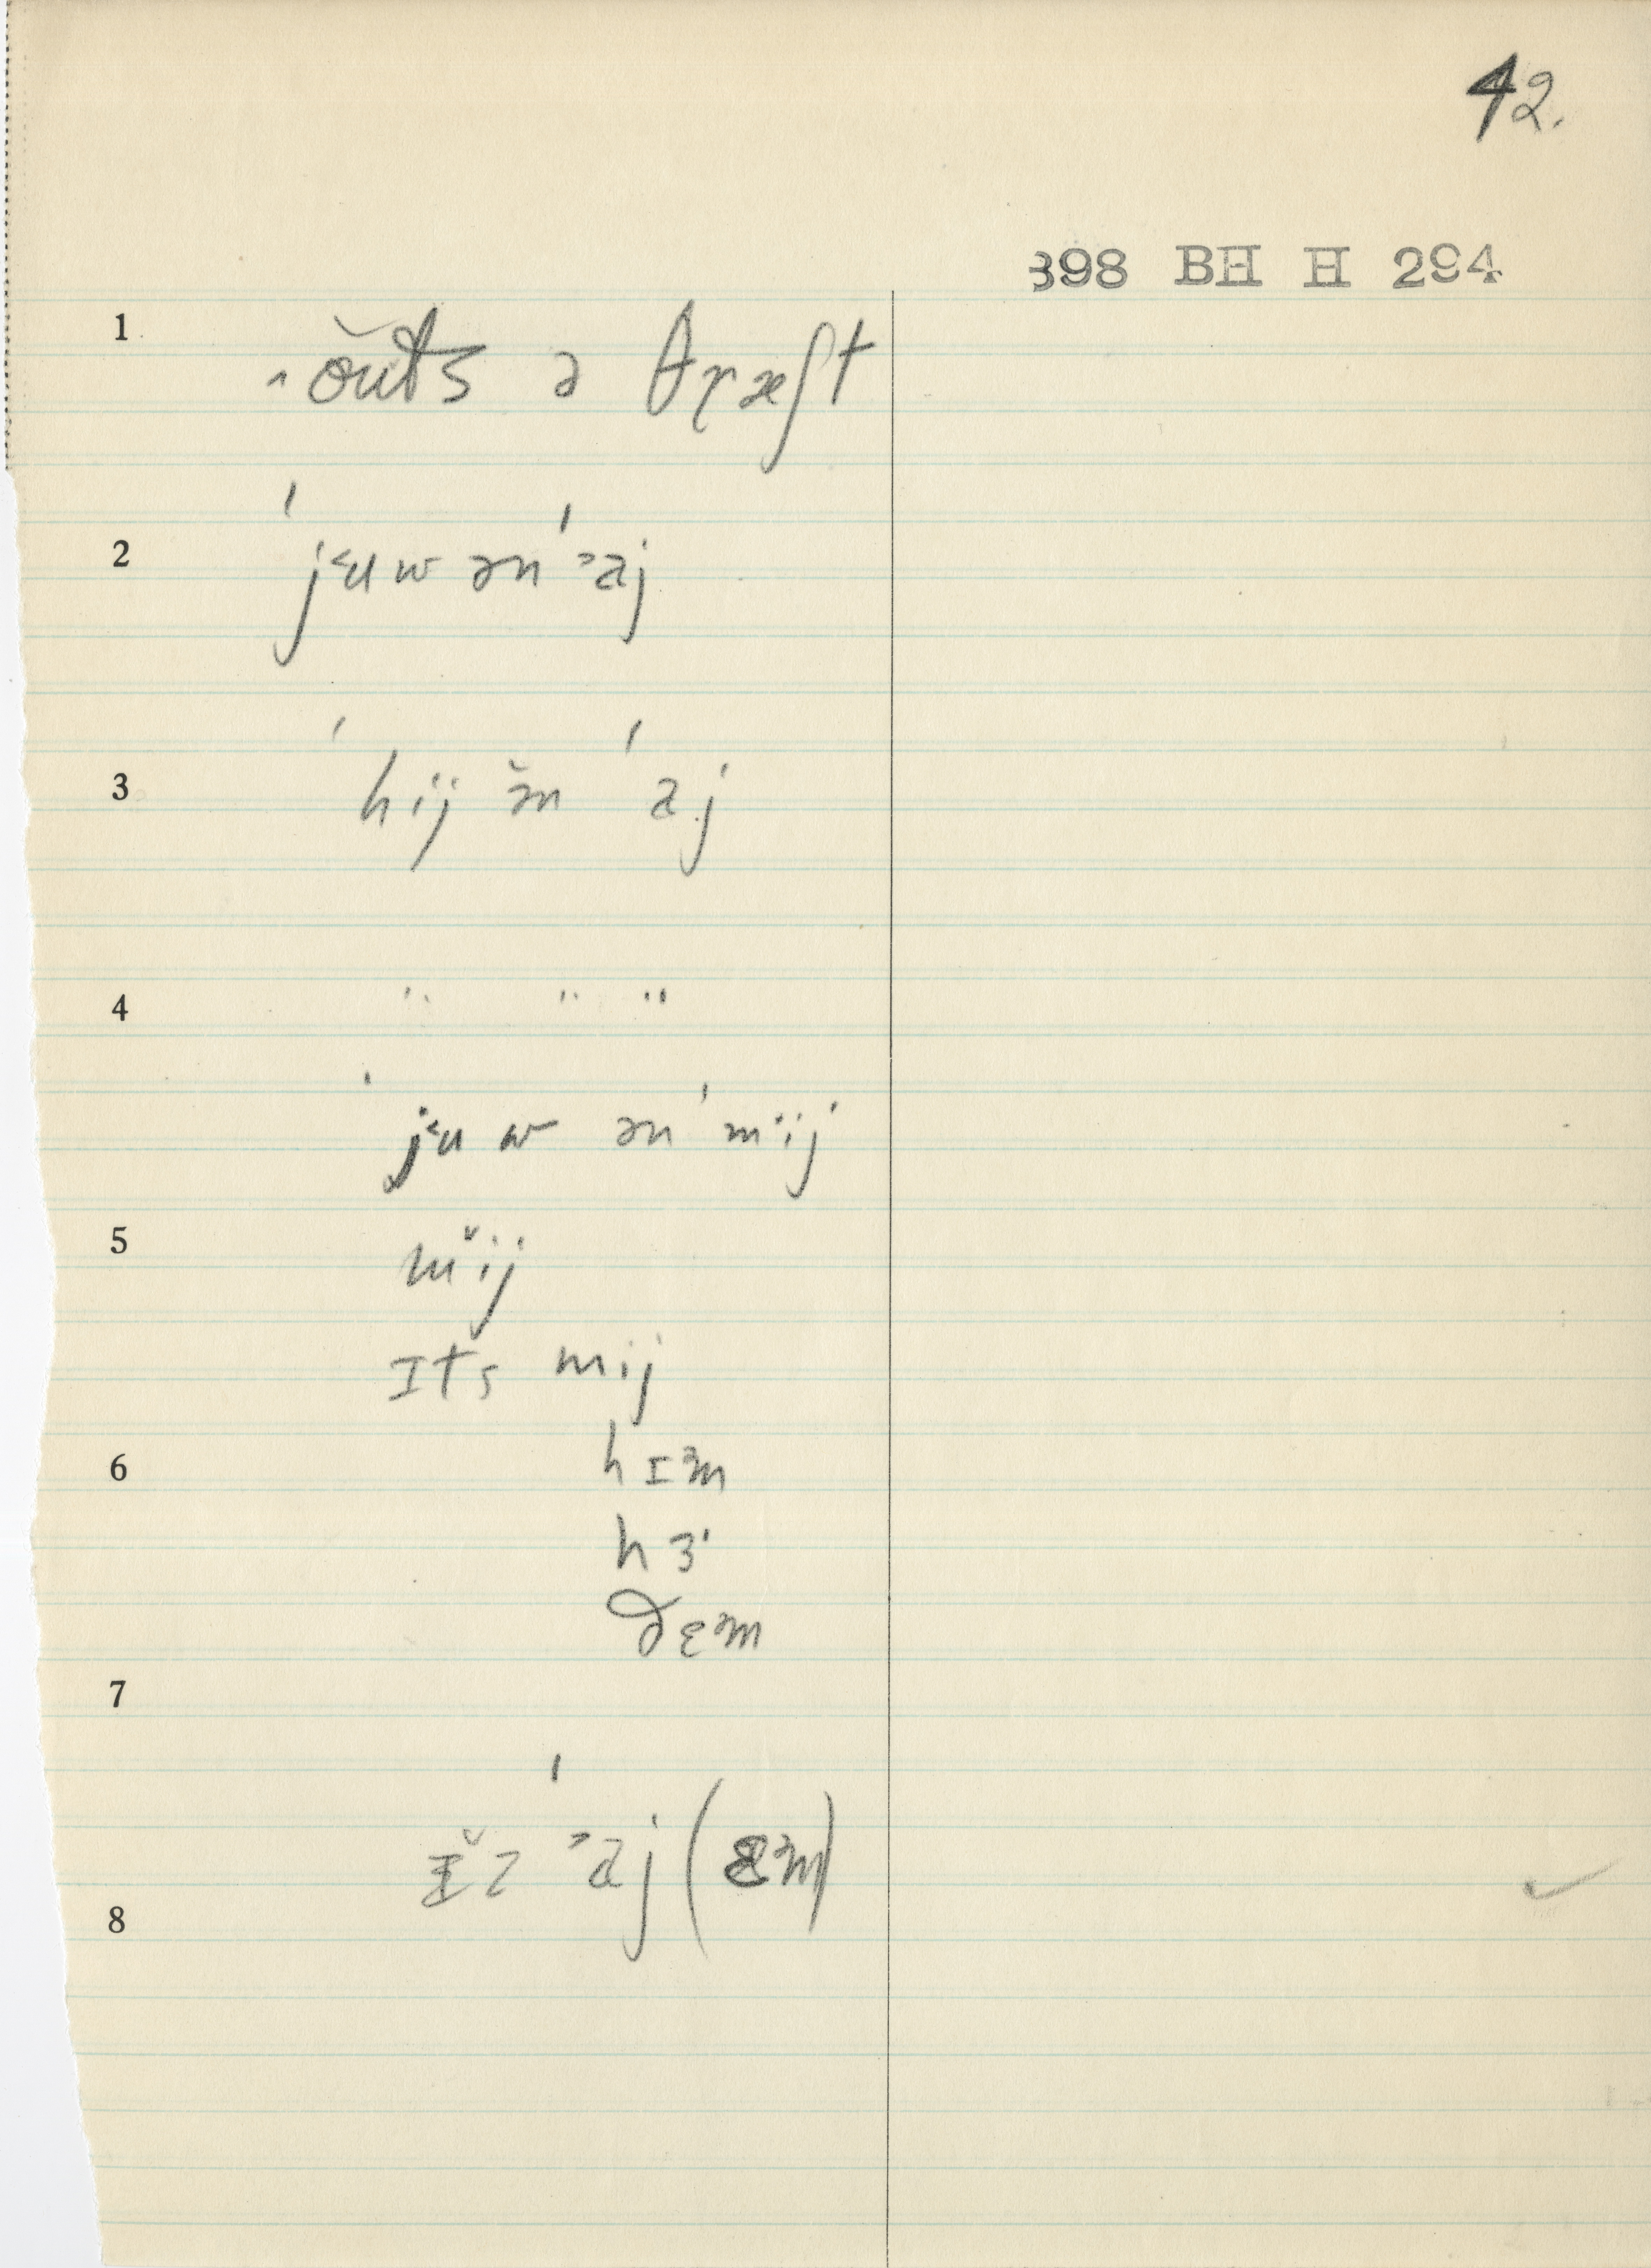 42.
898 BH H 294
1 ˄ŏuts ə θræʃt
2 ˈj˂ʉw ən ˈ˃aj
3 ˈhij ə̆n ˈaj
4 " " "
ˈj˂ʉw ən ˈm˅ij
5 m˅ij
ɪts mij
6 hɪ˃m
hɜ˞
ðɛ˃m
7
ɪ̆z ˈ˃aj (ɛ˃m)
8